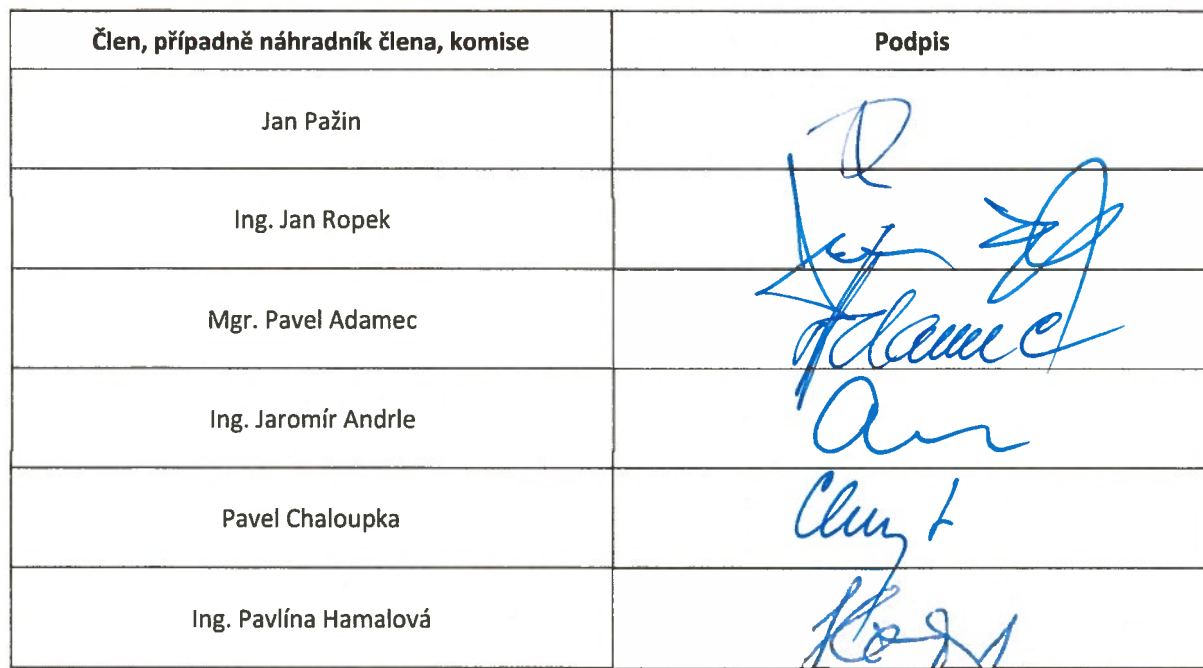 Člen, případně náhradník člena, komise Podpis
Jan Pažin
Ing. Jan Ropek
Mgr. Pavel Adamec Adamec
Ing. Jaromír Andrle
Pavel Chaloupka
Ing. Pavlína Hamalová